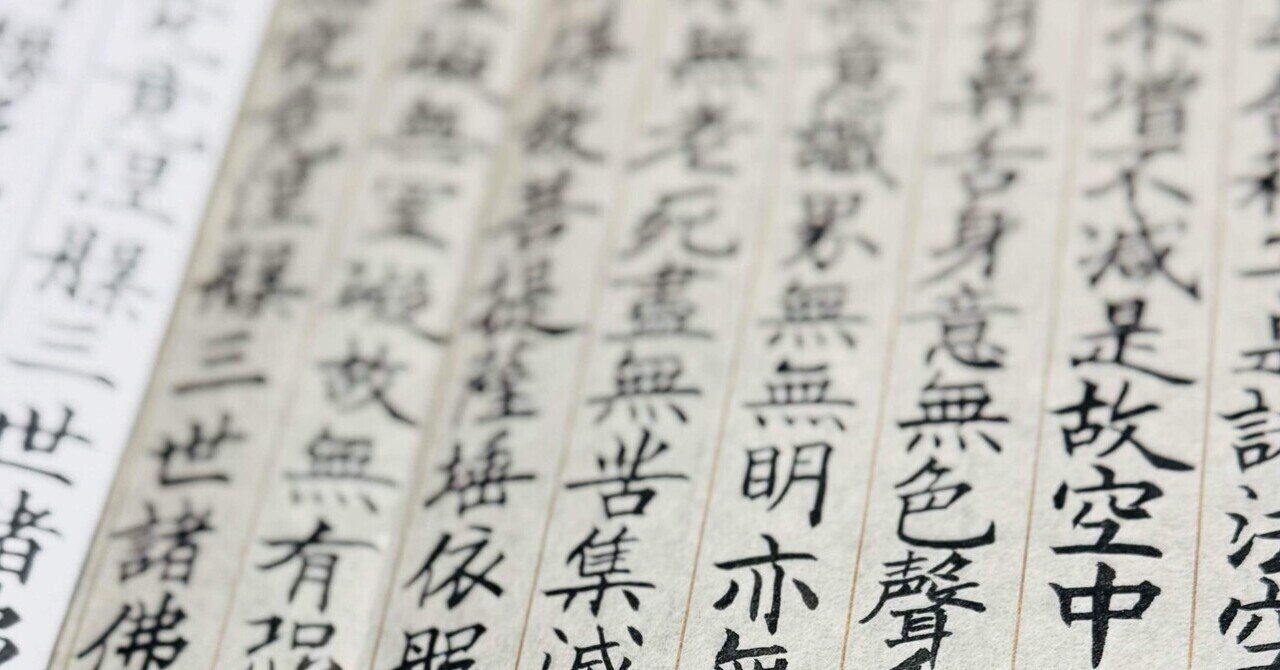 是諸法空
不增不減是故空中
鼻舌身意無色聲
意識界無無明亦無
無老死盡無苦集滅
得故菩提薩埵依
礙無罣礙故無有恐
究竟涅槃三世諸佛
竟涅槃三世諸